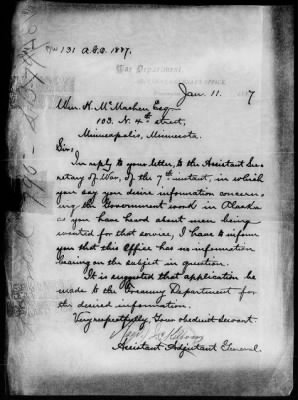 131 A.G.O. 1887.
War Department,
Jan. 11. 7
Wm. H. McMachen Esq.
103. N. 4th street,
Minneapolis, Minnesota.
Sir,
In reply to your letter, to the Assistant Sec-
retary of War, of the 7th instant, in which
you say you desire information concern-
ing the Government work in Alaska
as you have heard about men being
wanted for that service, I have to inform
you that this Office has no information
bearing on the subject in question.
It is suggested that application be
made to the Treasury Department for
the desired information.
Very respectfully, Your obedient servant
Assistant Adjutant General.